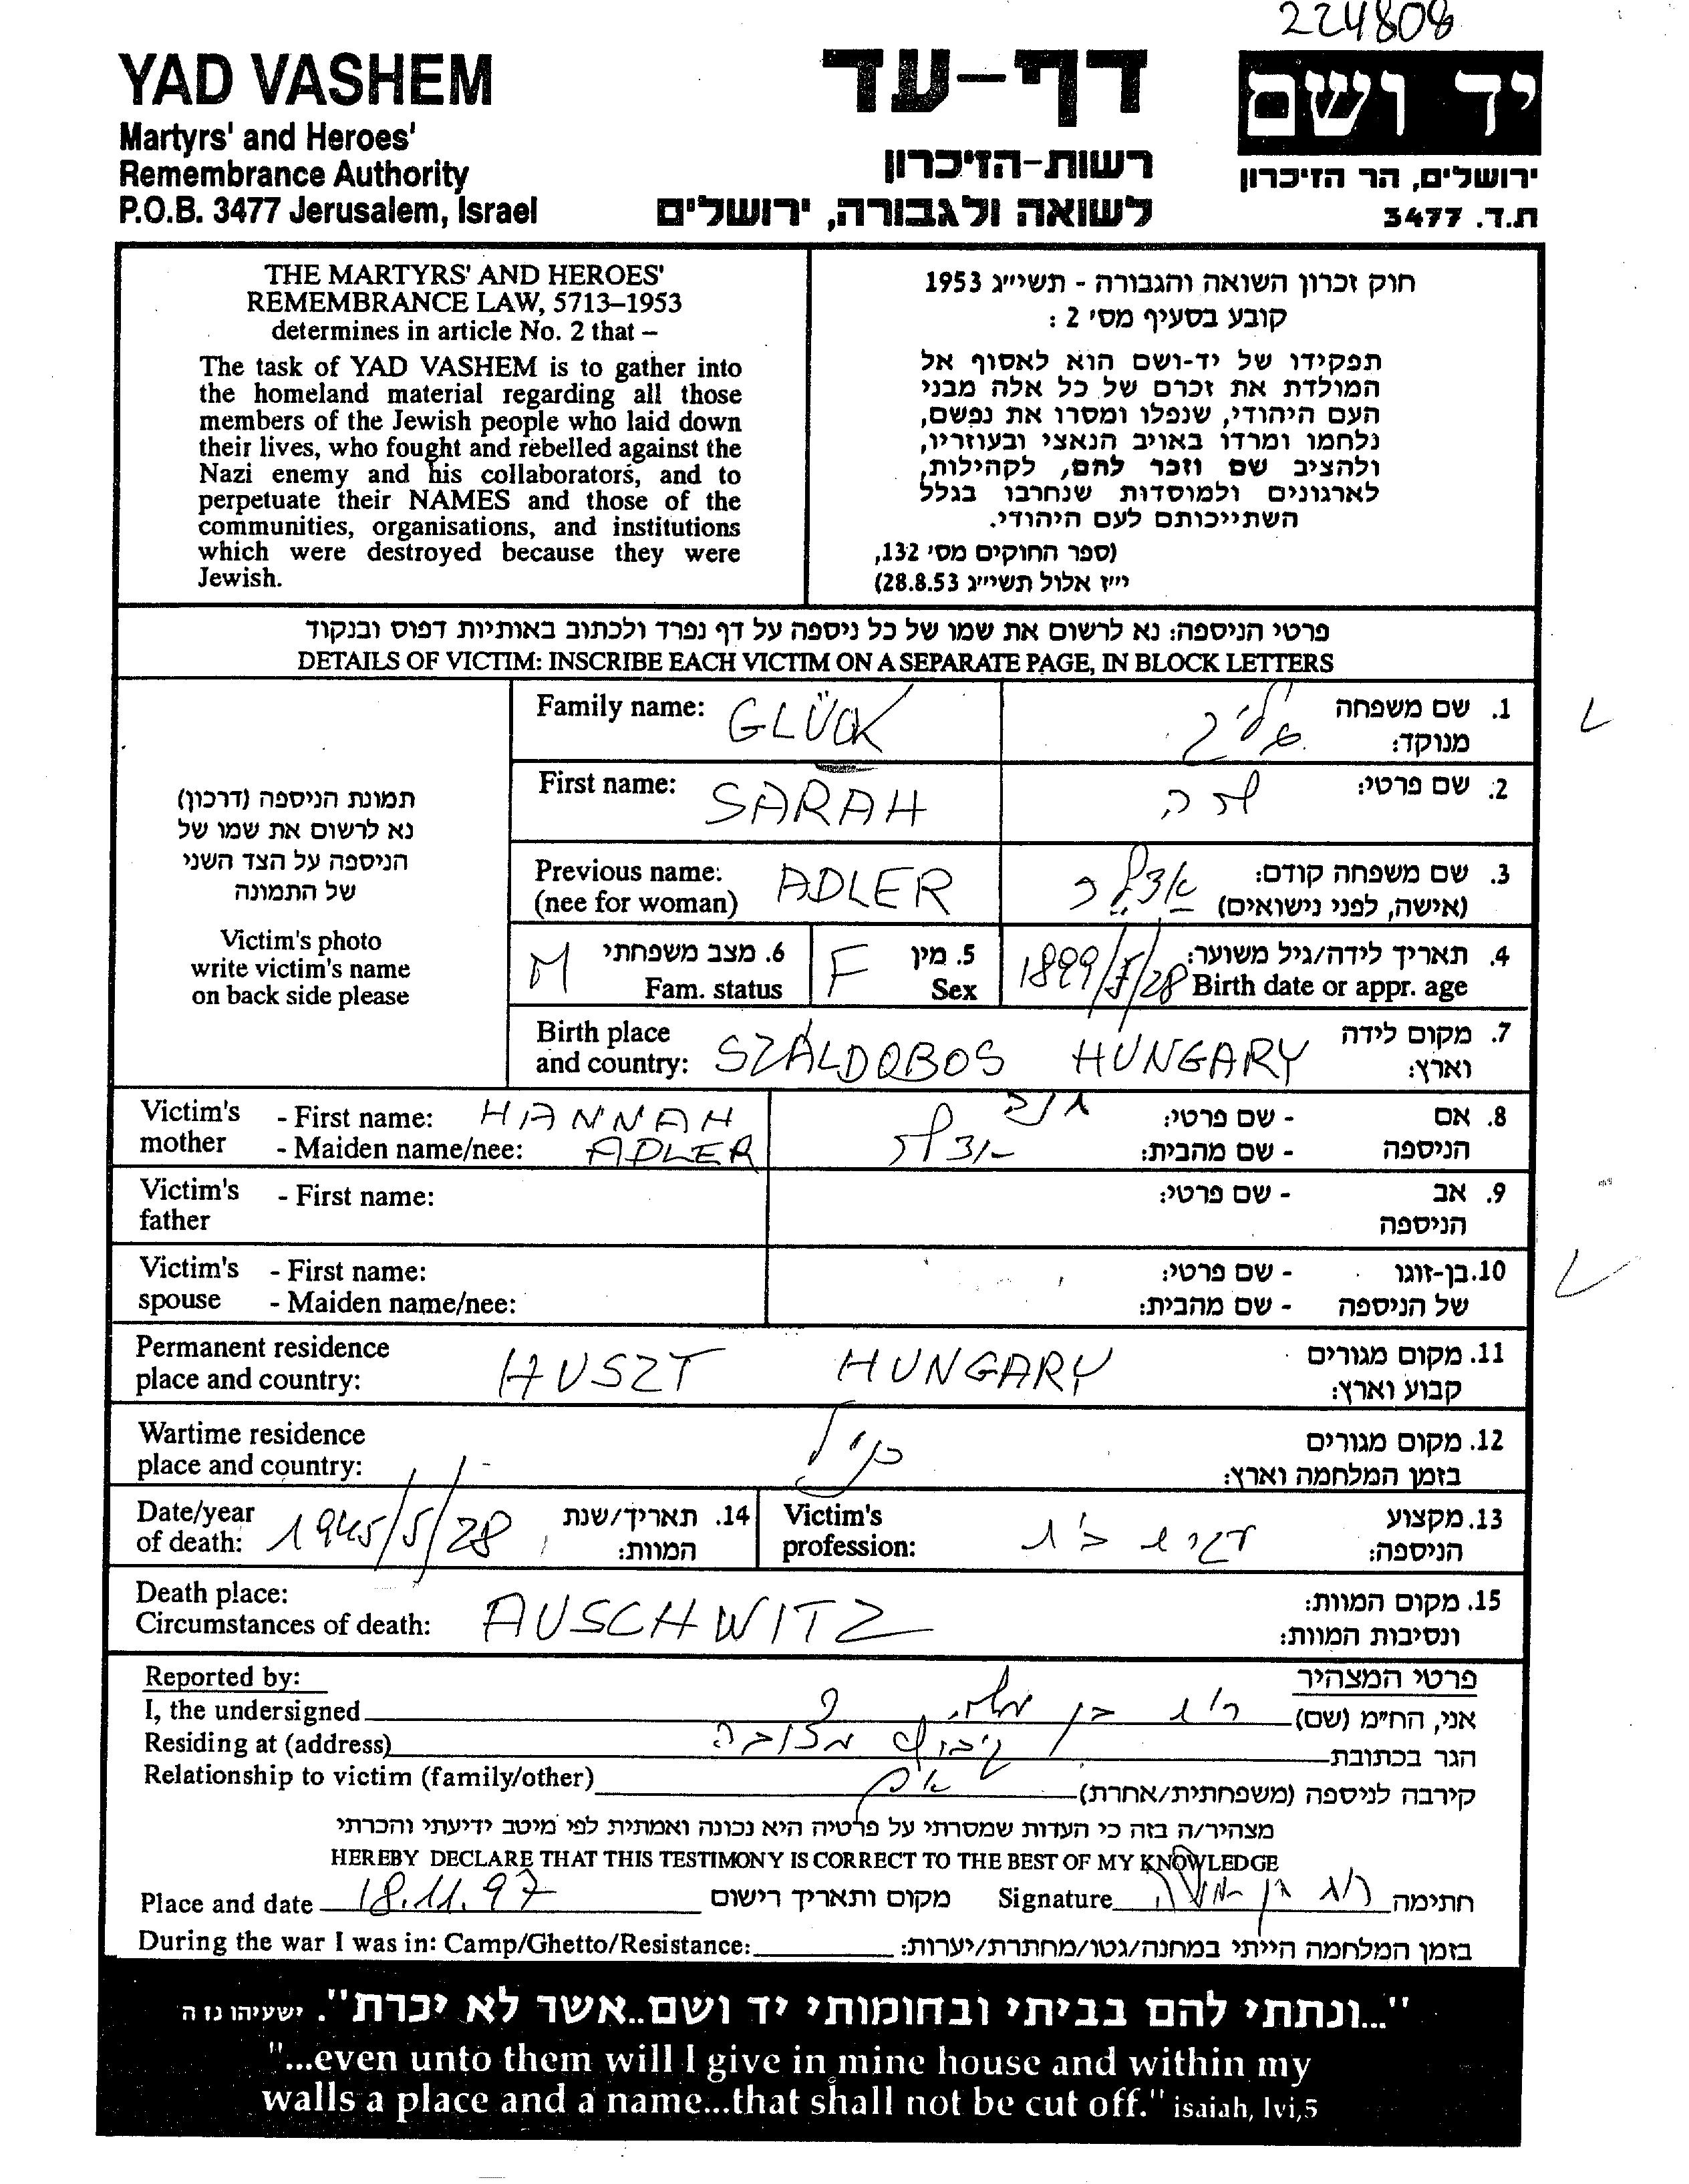 224808
YAD VASHEM
Martyrs' and Heroes'
Remembrance Authority
P.O.B. 3477 Jerusalem, Israel
דף-עד
רשות-הזיכרון
לשואה ולגבורה, ירושלים
יד ושם
ירושלים, הר הזיכרון
ת.ד. 3477
THE MARTYRS' AND HEROES'
REMEMBRANCE LAW, 5713–1953
determines in article No. 2 that –
The task of YAD VASHEM is to gather into
the homeland material regarding all those
members of the Jewish people who laid down
their lives, who fought and rebelled against the
Nazi enemy and his collaborators, and to
perpetuate their NAMES and those of the
communities, organisations, and institutions
which were destroyed because they were
Jewish.
חוק זכרון השואה והגבורה - תשי״ג 1953
קובע בסעיף מס' 2 :
תפקידו של יד-ושם הוא לאסוף אל
המולדת את זכרם של כל אלה מבני
העם היהודי, שנפלו ומסרו את נפשם,
נלחמו ומרדו באויב הנאצי ובעוזריו,
ולהציב שם וזכר להם, לקהילות,
לארגונים ולמוסדות שנחרבו בגלל
השתייכותם לעם היהודי.
(ספר החוקים מס' 132,
י״ז אלול תשי״ג 28.8.53)
פרטי הניספה: נא לרשום את שמו של כל ניספה על דף נפרד ולכתוב באותיות דפוס ובנקוד
DETAILS OF VICTIM: INSCRIBE EACH VICTIM ON A SEPARATE PAGE, IN BLOCK LETTERS
תמונת הניספה (דרכון)
נא לרשום את שמו של
הניספה על הצד השני
של התמונה
Victim's photo
write victim's name
on back side please
Family name: GLÜCK
1. שם משפחה
מנוקד:
First name: SARAH
2. שם פרטי: שרה
Previous name: ADLER
(nee for woman)
3. שם משפחה קודם: אדלר
(אישה, לפני נישואים)
M 6. מצב משפחתי
Fam. status
F 5. מין
Sex
4. תאריך לידה/גיל משוער:
1899/5/28 Birth date or appr. age
Birth place
and country: SZÁLDOBOS HUNGARY
7. מקום לידה
וארץ:
Victim's mother - First name: HANNAH
- Maiden name/nee: ADLER
8. אם - שם פרטי: חנה
הניספה - שם מהבית: אדלר
Victim's father - First name:
9. אב - שם פרטי:
הניספה
Victim's spouse - First name:
- Maiden name/nee:
10. בן-זוגו - שם פרטי:
של הניספה - שם מהבית:
Permanent residence
place and country: HUSZT HUNGARY
11. מקום מגורים
קבוע וארץ:
Wartime residence
place and country:
כנ״ל
12. מקום מגורים
בזמן המלחמה וארץ:
Date/year
of death: 1945/5/28
14. תאריך/שנת
המוות:
Victim's
profession:
13. מקצוע
הניספה:
Death place:
Circumstances of death: AUSCHWITZ
15. מקום המוות:
ונסיבות המוות:
Reported by:
פרטי המצהיר
I, the undersigned
אני, הח״מ (שם)
Residing at (address)
קיבוץ מצובה
הגר בכתובת
Relationship to victim (family/other)
קירבה לניספה (משפחתית/אחרת)
מצהיר/ה בזה כי העדות שמסרתי על פרטיה היא נכונה ואמתית לפי מיטב ידיעתי והכרתי
HEREBY DECLARE THAT THIS TESTIMONY IS CORRECT TO THE BEST OF MY KNOWLEDGE
Place and date 18.11.97 מקום ותאריך רישום
Signature חתימה
During the war I was in: Camp/Ghetto/Resistance:
בזמן המלחמה הייתי במחנה/גטו/מחתרת/יערות:
"...ונתתי להם בביתי ובחומותי יד ושם..אשר לא יכרת". ישעיהו נז ה
"...even unto them will I give in mine house and within my
walls a place and a name...that shall not be cut off." isaiah, lvi,5